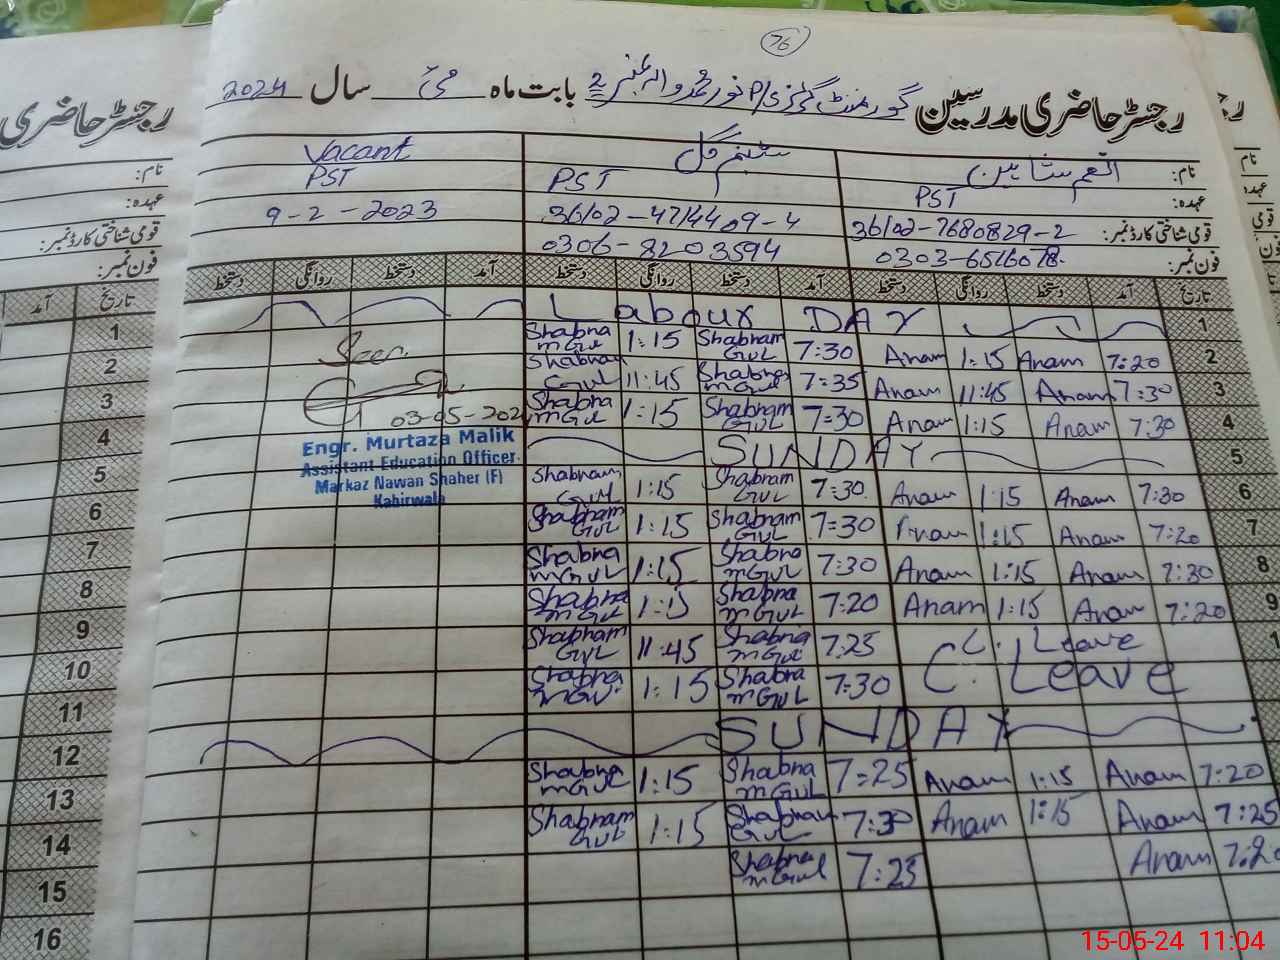 76
رجسٹر حاضری مدرسین گورنمنٹ گرلز P/S نور محمد والہ نمبر 2 بابت ماہ مئی سال 2024
نام: انعم شاہین شبنم گل Vacant
عہدہ: PST PST PST
قومی شناختی کارڈ نمبر: 36102-7680829-2 36102-4714409-4 9-2-2023
فون نمبر: 0303-6516078 0306-8203594
تاریخ آمد دستخط روانگی دستخط آمد دستخط روانگی دستخط آمد دستخط روانگی دستخط
1 Labour DAY
2 7:20 Anam 1:15 Anam 7:30 Shabnam Gul 1:15 Shabnam Gul
3 7:30 Anam 11:45 Anam 7:35 Shabnam Gul 11:45 Shabnam Gul
4 7:30 Anam 1:15 Anam 7:30 Shabnam Gul 1:15 Shabnam Gul
5 SUNDAY
6 7:30 Anam 1:15 Anam 7:30 Shabnam Gul 1:15 Shabnam Gul
7 7:20 Anam 1:15 Anam 7:30 Shabnam Gul 1:15 Shabnam Gul
8 7:30 Anam 1:15 Anam 7:30 Shabnam Gul 1:15 Shabnam Gul
9 7:20 Anam 1:15 Anam 7:20 Shabnam Gul 1:15 Shabnam Gul
C. Leave 7:25 Shabnam Gul 11:45 Shabnam Gul
C. Leave 7:30 Shabnam Gul 1:15 Shabnam Gul
SUNDAY
7:20 Anam 1:15 Anam 7:25 Shabnam Gul 1:15 Shabnam Gul
7:25 Anam 1:15 Anam 7:30 Shabnam Gul 1:15 Shabnam Gul
7:20 Anam 7:25 Shabnam Gul
Seen
03-05-2024
Engr. Murtaza Malik
Assistant Education Officer
Markaz Nawan Shaher (F)
Kabirwala
رجسٹر حاضری
نام:
عہدہ:
قومی شناختی کارڈ نمبر:
فون نمبر:
تاریخ آمد
1
2
3
4
5
6
7
8
9
10
11
12
13
14
15
16
15-05-24 11:04